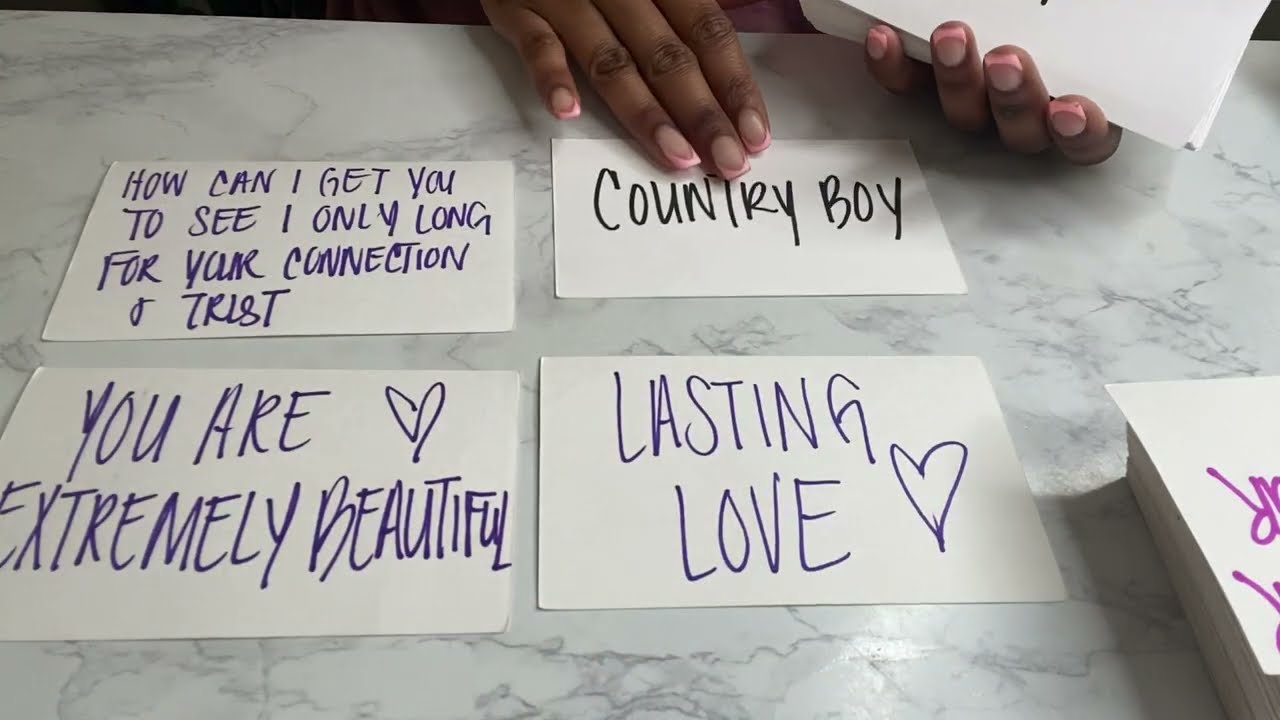 HOW CAN I GET YOU
TO SEE I ONLY LONG
FOR YOUR CONNECTION
& TRUST
COUNTRY BOY
YOU ARE ♡
EXTREMELY BEAUTIFUL
LASTING
LOVE ♡